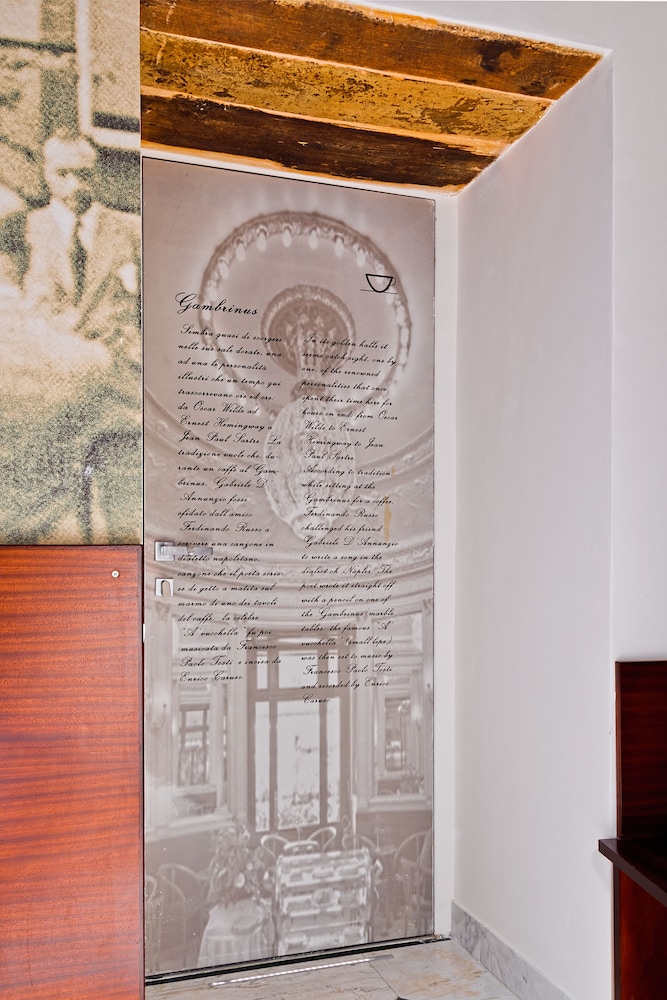 Gambrinus
Sembra quasi di scorgere,
nelle sur sale dorate, una
ad una le personalità
illustri che un tempo qui
trascorrevano ore ed ore:
da Oscar Wilde ad
Ernest Hemingway a
Jean Paul Sartre. La
tradizione vuole che, du-
rante un caffè al Gam-
brinus, Gabriele D'
Annunzio fosse
sfidato dall'amico
Ferdinando Russo a
scrivere una canzone in
dialetto napoletano,
canzone che il poeta scris-
se di getto a matita sul
marmo di uno dei tavoli
del caffè: la celebre
"A vucchella" fu poi
musicata da Francesco
Paolo Tosti e incisa da
Enrico Caruso.
In its golden halls it
seems catch sight, one by
one, of the renowned
personalities that once
spent their time here for
hours on end: from Oscar
Wilde to Ernest
Hemingway to Jean
Paul Sartre.
According to tradition,
while sitting at the
Gambrinus for a coffee,
Ferdinando Russo
challenged his friend
Gabriele D'Annunzio
to write a song in the
dialect oh Naples. The
poet wrote it straight off
with a pencil on one of
the Gambrinus marble
tables: the famous "A
vucchella" (small lips)
was then set to music by
Francesco Paolo Tosti
and recorded by Enrico
Caruso.